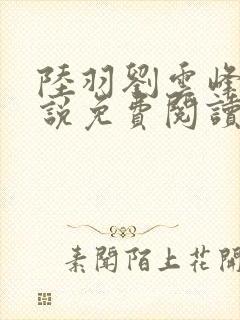 陸羽劉雲峰
說免費閱讀
素聞陌上花開